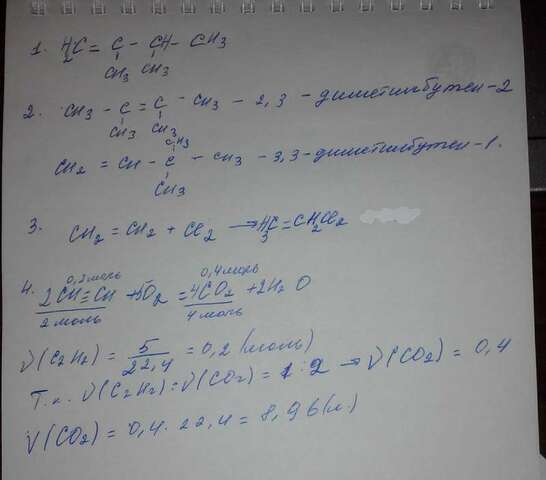 1. H₂C = C - CH - CH3
CH3 CH3
2. CH3 - C = C - CH3 - 2,3 - диметилбутен-2
CH3 CH3
CH3
CH2 = CH - C - CH3 - 3,3-диметилбутен-1.
CH3
3. CH2 = CH2 + Cl2 → H3C = CH2Cl2
0,2моль 0,4моль
4. 2CH≡CH + 5O2 = 4CO2 + 2H2O
2 моль 4 моль
ν(C2H2) = 5/22,4 = 0,2 (моль)
Т.к. ν(C2H2):ν(CO2) = 1:2 → ν(CO2) = 0,4
V(CO2) = 0,4 · 22,4 = 8,96(л.)